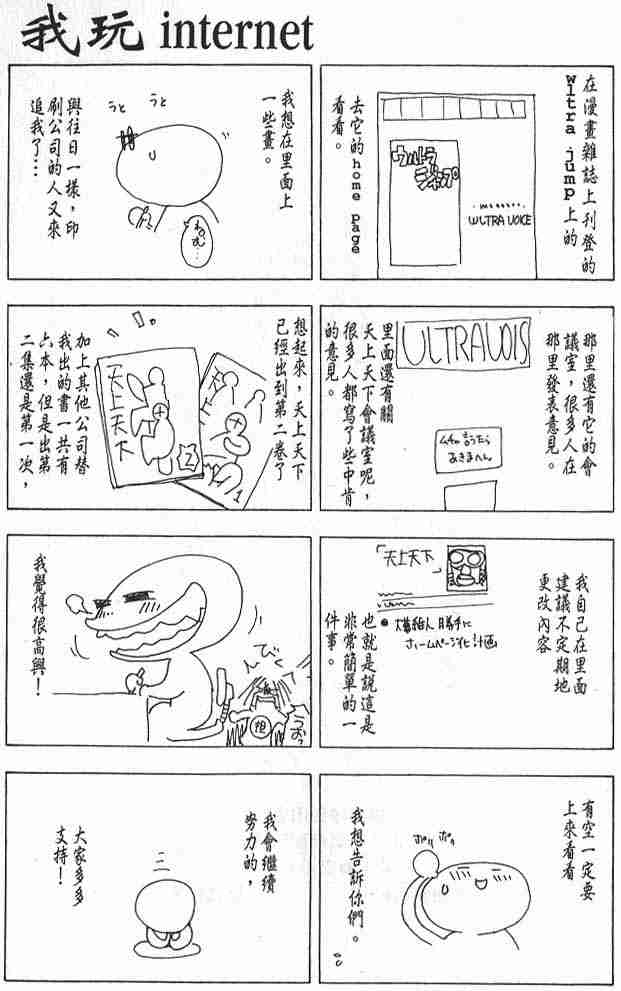 我玩 internet
在漫畫雜誌上刊登的
wltra jump上的
去它的home page
看看。
ウルトラ
ジャンプ
WLTRA VOICE
那里還有它的會
議室，很多人在
那里發表意見。
ULTRAVOIS
里面還有關
天上天下會議室呢，
很多人都寫了些中肯
的意見。
我自己在里面
建議不定期地
更改內容
「天上天下」
ホームページ化計画
也就是說這是
非常簡單的一
件事。
有空一定要
上來看看
ポリ ポリ
我想告訴你們。
我想在里面上
一些畫。
うと うと
與往日一樣，印
刷公司的人又來
追我了…
想起來，天上天下
已經出到第二卷了
天上天下
2
1
加上其他公司替
我出的書一共有
六本，但是出第
二集還是第一次，
我覺得很高興！
担
うおっ
我會繼續
努力的，
大家多多
支持！